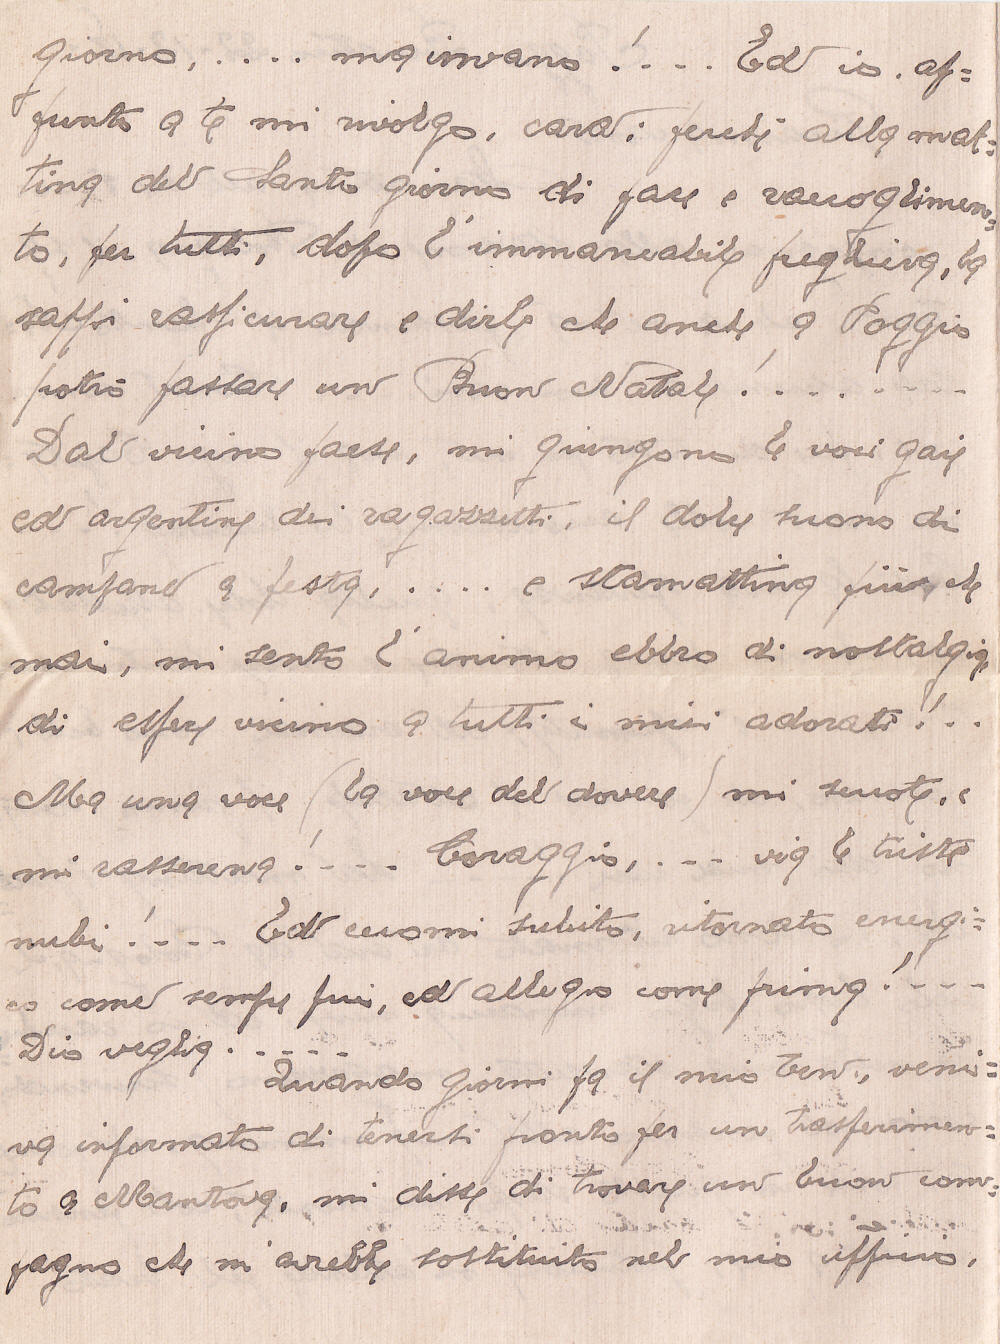 giorno, .... ma invano!.... Ed io. ap=
punto a te mi rivolgo, cara; perchè alla mat=
tina del Santo giorno di pace e raccoglimen=
to, per tutti, dopo l'immancabile preghiera, la
sappi rassicurare e dirle che anche a Poggio
potrò passare un Buon Natale!........
Dal vicino paese, mi giungono le voci gaie
ed argentine dei ragazzetti, il dolce suono di
campane a festa, ..... e stamattina più che
mai, mi sento l'animo ebbro di nostalgia,
di essere vicino a tutti i miei adorati!...
Ma una voce (la voce del dovere) mi scuote, e
mi rasserena!.... Coraggio,.... via le triste
nubi!.... Ed eccomi subito, ritornato energi=
co come sempre fui, ed allegro come prima!....
Dio veglia......
Quando giorni fa il mio Ten., veni=
va informato di tenersi pronto per un trasferimen=
to a Mantova, mi disse di trovare un buon com=
pagno che m'avrebbe sostituito nel mio ufficio.